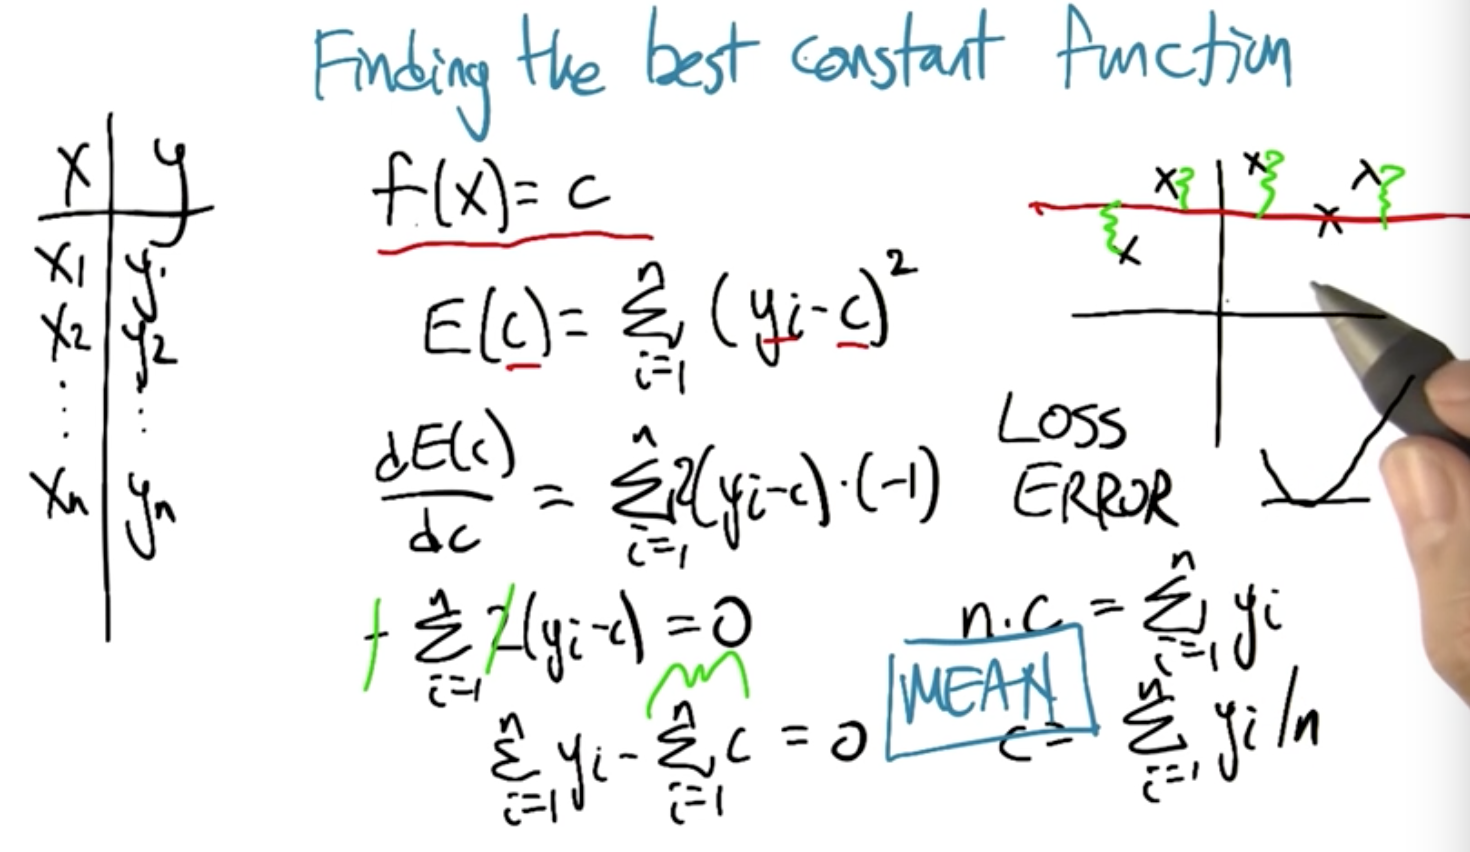 Finding the best constant function
x y
x1 y1
x2 y2
⋮ ⋮
xn yn
f(x) = c
E(c) = Σ_{i=1}^{n} (yi - c)^2
dE(c)/dc = Σ_{i=1}^{n} 2(yi - c)·(-1)
LOSS
ERROR
- Σ_{i=1}^{n} 2(yi - c) = 0
Σ_{i=1}^{n} yi - Σ_{i=1}^{n} c = 0
n·c = Σ_{i=1}^{n} yi
MEAN
c = Σ_{i=1}^{n} yi/n